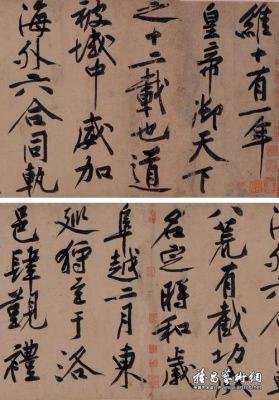 維十有一年
皇帝御天下
之十二載也道
被域中威加
海外六合同軌
八荒有截功成
名定時和歲
阜越二月東
巡狩至于洛
邑肆覲禮
雅昌藝術網